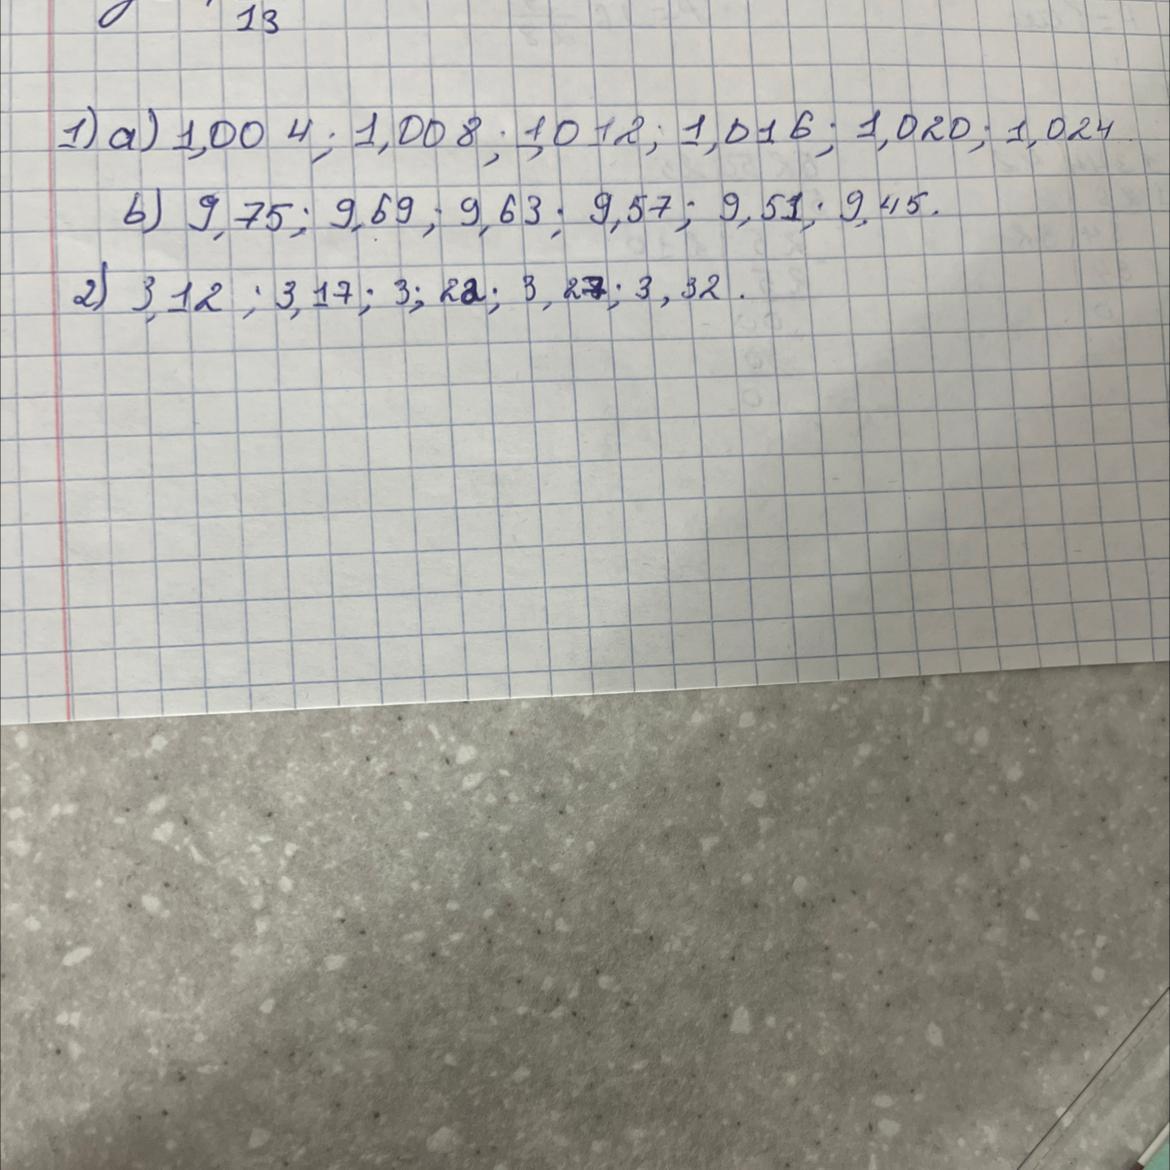 13
1) a) 1,004; 1,008; 1,012; 1,016; 1,020; 1,024
b) 9,75; 9,69; 9,63; 9,57; 9,51; 9,45.
2) 3,12; 3,17; 3; 22; 3,27; 3,32.